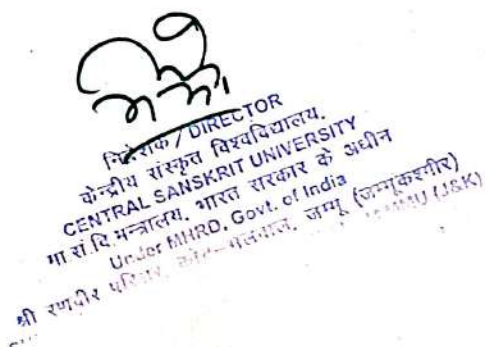 निदेशक / DIRECTOR
केन्द्रीय संस्कृत विश्वविद्यालय,
CENTRAL SANSKRIT UNIVERSITY
मा.सं.वि.मन्त्रालय, भारत सरकार के अधीन
Under MHRD, Govt. of India
श्री रणवीर परिसर, कोट-भलवाल, जम्मू (जम्मूकश्मीर)
JAMMU (J&K)